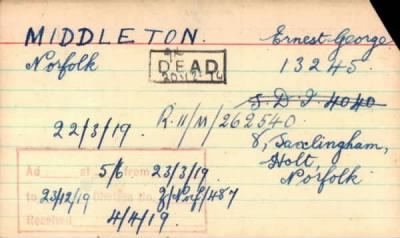 MIDDLETON. Ernest George.
Norfolk DEAD 13245.
S.D.I. 4040
22/3/19. R.11/M/262540. 8, Saxlingham,
Holt,
Norfolk
Ad at 5/6 from 23/3/19.
to 23/12/19 No. 2/Norf/487
Received 4/4/19.